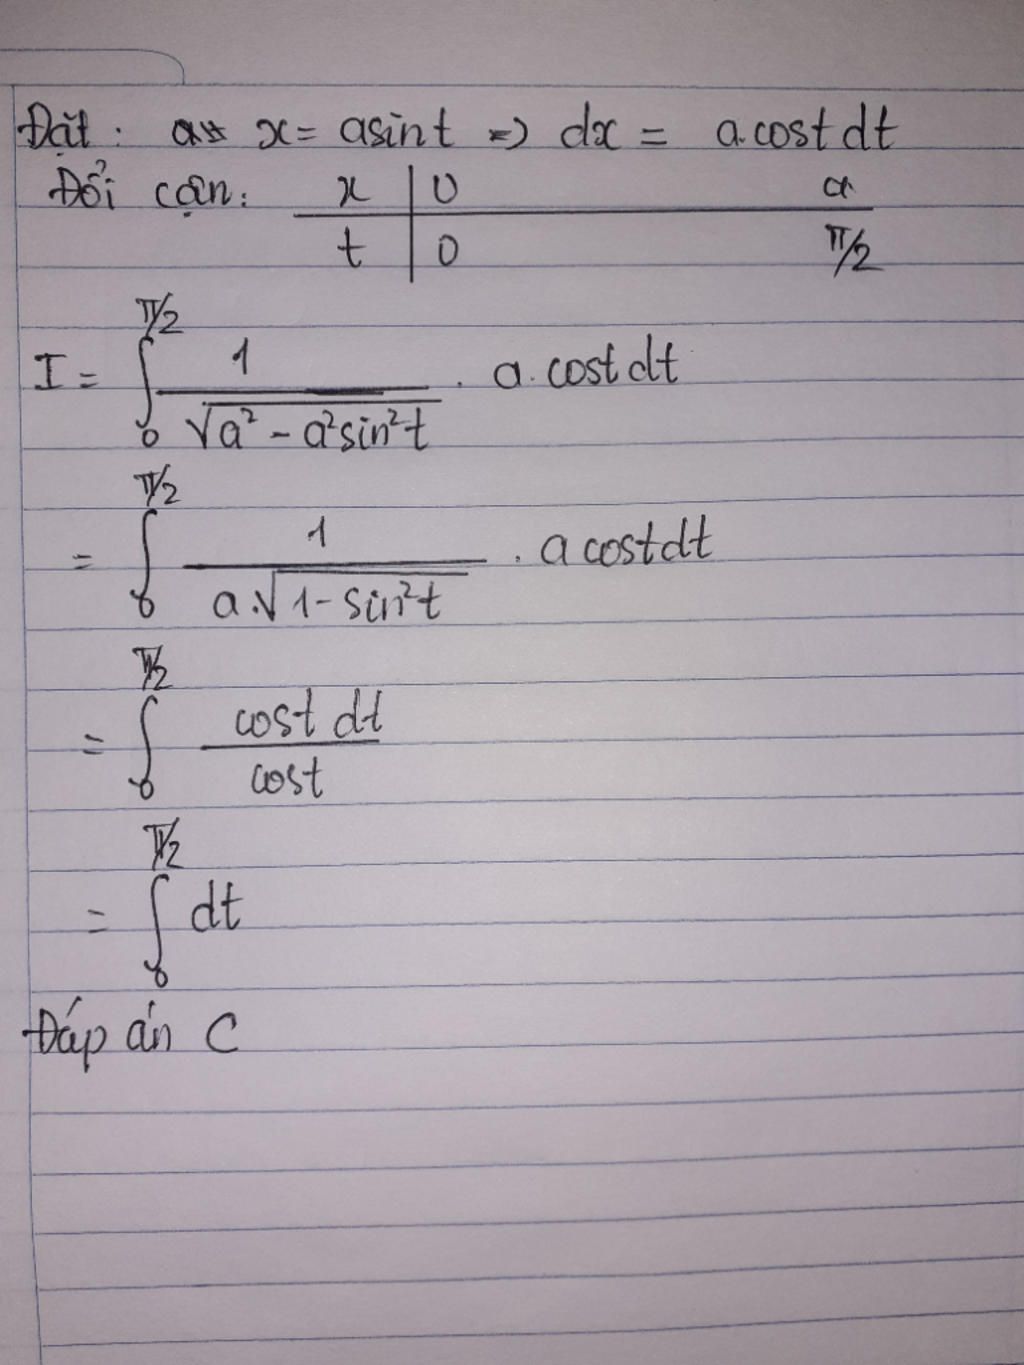 Đặt: x = asint => dx = a.cost dt
Đổi cận: x | 0 a
t | 0 π/2
I = ∫₀^{π/2} 1/√(a² - a²sin²t) . a.cost dt
= ∫₀^{π/2} 1/(a.√(1-sin²t)) . a cost dt
= ∫₀^{π/2} cost dt/cost
= ∫₀^{π/2} dt
Đáp án C